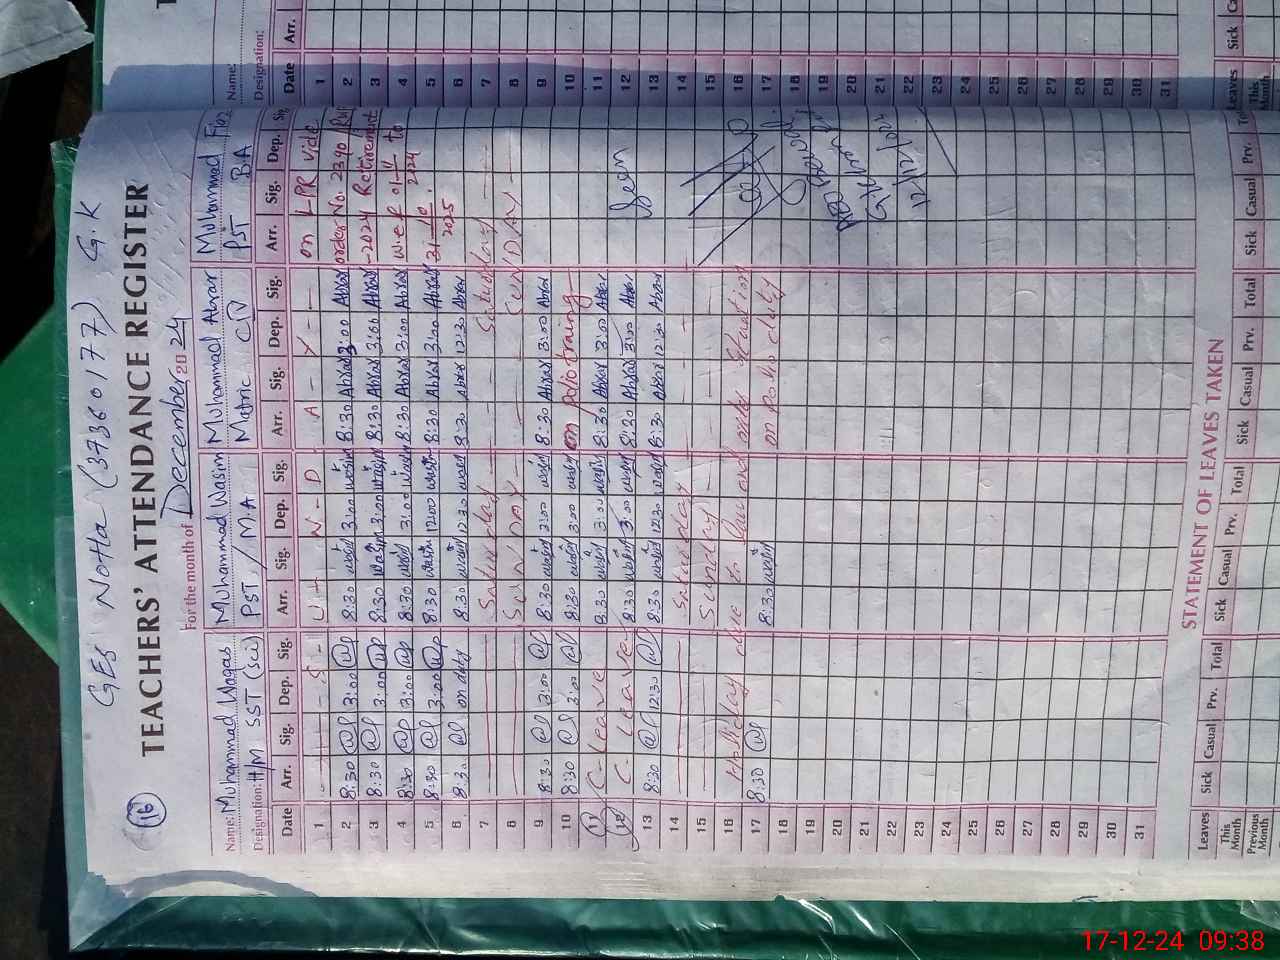 16
GES Notta (37360177) G.K
TEACHERS' ATTENDANCE REGISTER
For the month of December 20 24
Name: Muhammad Waqas Muhammad Wasim Muhammad Abrar Muhammad
Designation: H/M SST (Sci) PST / MA Matric CTV PST BA
Date Arr. Sig. Dep. Sig. Arr. Sig. Dep. Sig. Arr. Sig. Dep. Sig. Arr. Sig. Dep. Sig.
1 S U N D A Y on LPR vide
2 8:30 WP 3:00 WP 8:30 wasim 3:00 wasim 8:30 Abrar 3:00 Abrar order No. 2390
3 8:30 WP 3:00 WP 8:30 wasim 3:00 wasim 8:30 Abrar 3:00 Abrar -2024 Retirement
4 8:30 WP 3:00 WP 8:30 wasim 3:00 wasim 8:30 Abrar 3:00 Abrar w.e.f 01-11-2024 to
5 8:30 WP 3:00 WP 8:30 wasim 12:00 wasim 8:30 Abrar 3:00 Abrar 31-10-2025
6 8:30 WP on duty 8:30 wasim 12:30 wasim 8:30 Abrar 12:30 Abrar
7 Saturday Saturday
8 SUNDAY SUNDAY
9 8:30 WP 3:00 WP 8:30 wasim 3:00 wasim 8:30 Abrar 3:00 Abrar
10 8:30 WP 3:00 WP 8:30 wasim 3:00 wasim on polio training
11 C- Leave 8:30 wasim 3:00 wasim 8:30 Abrar 3:00 Abrar
12 C- Leave 8:30 wasim 3:00 wasim 8:30 Abrar 3:00 Abrar Seen
13 8:30 WP 12:30 WP 8:30 wasim 12:30 wasim 8:30 Abrar 12:30 Abrar
14 Saturday
15 Sunday
16 Holiday due to Law and order situation
17 8:30 WP 8:30 wasim on polio duty
18
19
20
21
22
23
24
25
26
27
28
29
30
31
STATEMENT OF LEAVES TAKEN
Leaves Sick Casual Prv. Total Sick Casual Prv. Total Sick Casual Prv. Total Sick Casual Prv.
This Month
Previous Month
Name:
Designation:
Date Arr.
1
2
3
4
5
6
7
8
9
10
11
12
13
14
15
16
17
18
19
20
21
22
23
24
25
26
27
28
29
30
31
Leaves Sick
This Month
17-12-24 09:38